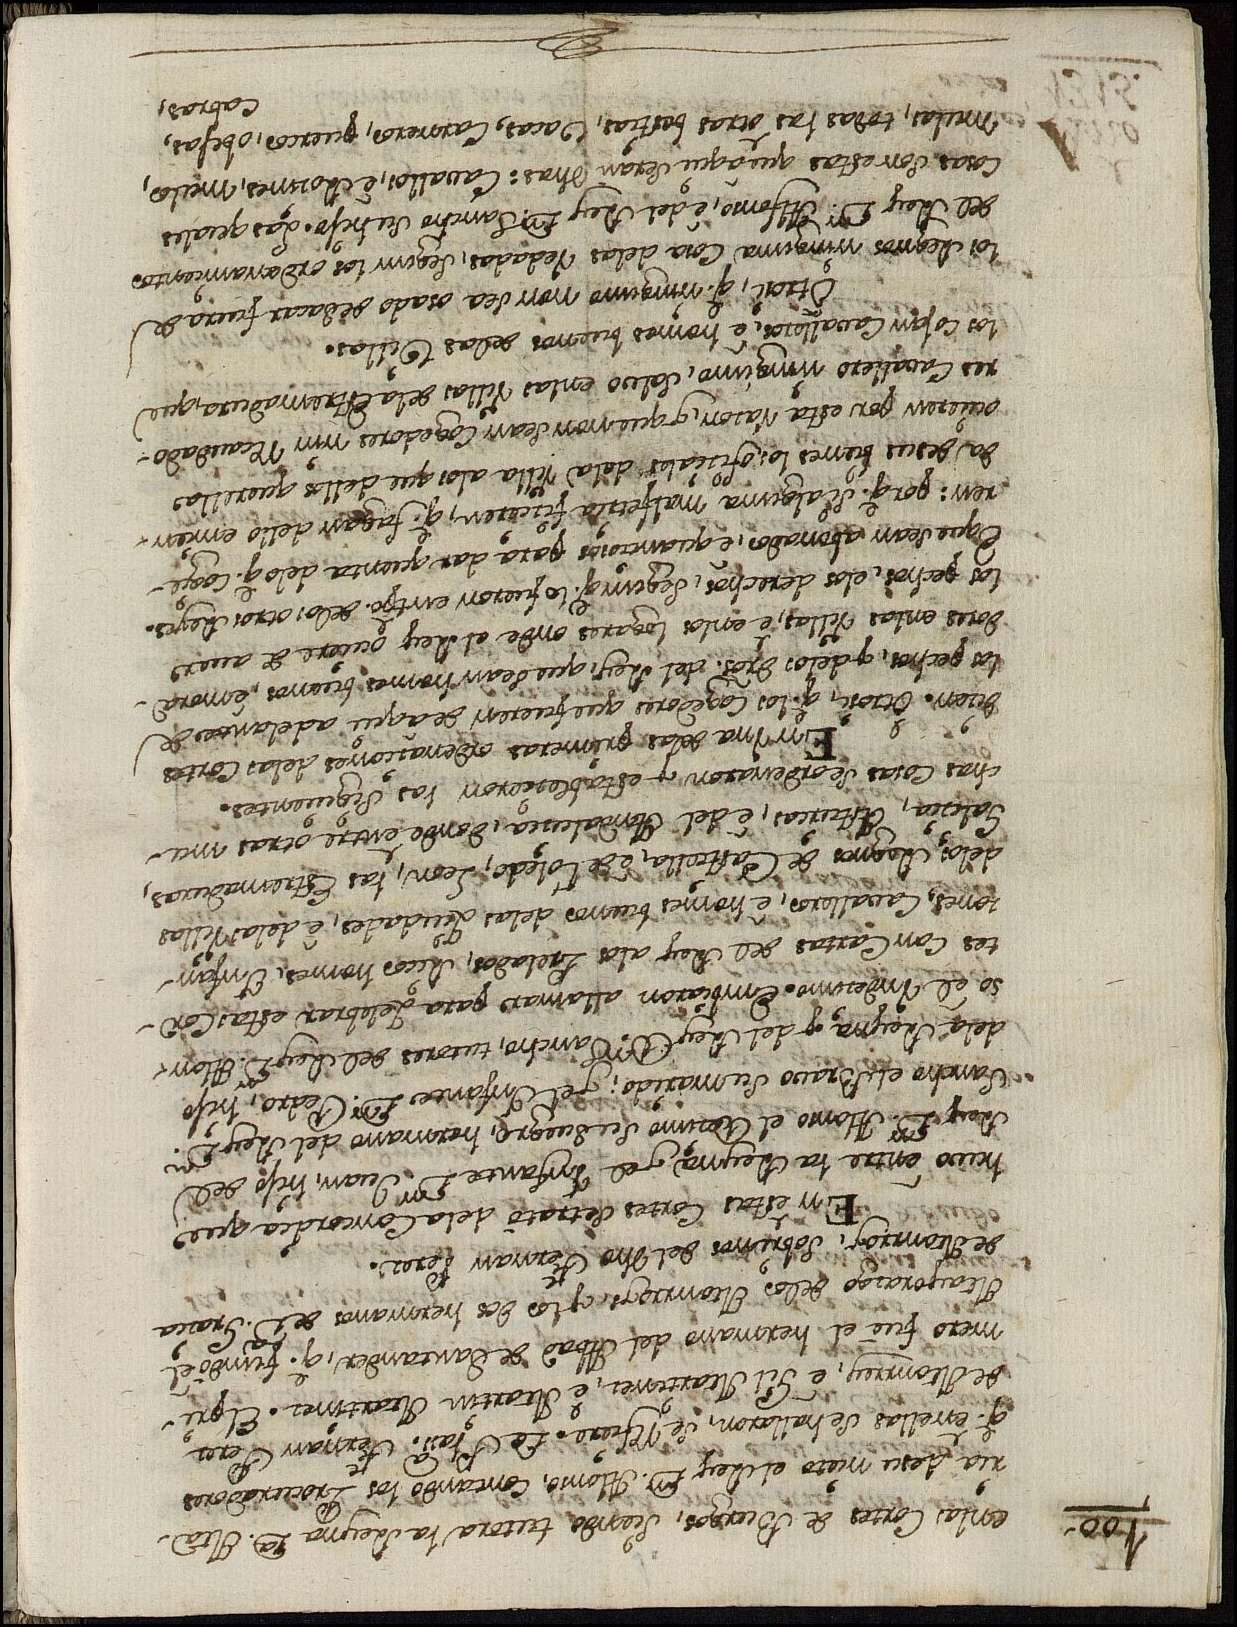 100.
enlas Cortes de Burgos, siendo tutora la Reyna Dª. Ma-
ria desu nieto el Rey Dn. Alonso, Contando los Procuradores
q. enellas se hallaron, se refiere. E Vasº. Fernan Perez
de Monrroy, e Gil Martinez, e Martin Martinez. El pri-
mero fue el hermano del Abad de Santander, q. fundo el
Mayorazgo delos Monrroyes, y los dos hermanos de Dª. Gracia
de Monrroy, Sobrinos del dho Fernan Perez.
En estas Cortes se trato dela Concordia que
huvo entre la Reyna, y el Infante Dn. Juan, hijo del
Rey Dn. Alonso el Decimo su suegro, hermano del Rey Dn.
Sancho el Bravo su marido; y el Infante Dn. Pedro, hijo
dela Reyna, y del Rey Dn. Sancho, tutores del Rey D. Alon-
so el Undecimo. Embiaron allamar para zelebrar estas Cor-
tes Con Cartas del Rey alos Prelados, Ricos homes, Infan-
zones, Cavalleros, è homes buenos delas Ziudades, è delas Villas
delos Regnos de Castiella, è de Toledo, Leon, las Estremaduras,
Galizia, Asturias, è del Andalucia, donde entre otras mu-
chas Cosas se ordenaron, y establescieron las siguientes.
En Una delas primeras ordenaziones delas Cortes
dizen. Otrosi, q. los Cogedores que fueren de aqui adelante de
los pechos, y delos dros. del Rey, que sean homes buenos, è mora-
dores enlas Villas, è enlos logares onde el Rey oviere de aver
los pechos, elos derechos, segun q. lo fueron en tpo. delos otros Reyes.
E que sean abonados, e quantiosos para dar quenta delo q. Coge-
ren: porq. si alguna malfetria ficieren, q. fagan dello enmien-
da desus bienes los ofiziales dela Villa alos que dellos querellas
ovieren por esta razon, y que non sean Cogedores nin Recaudado-
res Cavallero ninguno, salvo enlas Villas dela Estremadura, que
los Cojan Cavalleros, è homes buenos delas Villas.
Otrosi, q. ninguno non sea osado de sacar fuera de
los Regnos ninguna Cosa delas Vedadas, segun los ordenamientos
del Rey Dn. Alfonso, è del Rey Dn. Sancho su hijo. Las quales
Cosas son estas que aqui seran dhas: Cavallos, è Rozines, mulos,
mulas, todas las otras bestias, Vacas, Carneros, puercos, obejas,
Cabras,